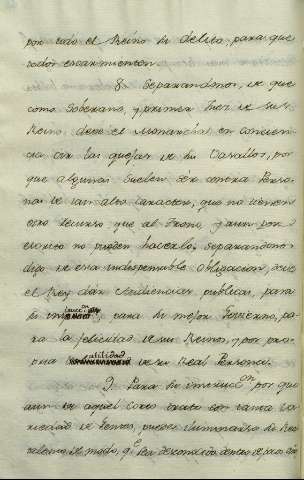 por todo el Reino su delito, para que
todos escarmienten.
8. Separandonos, de que
como Soberano, y primer Juez de su
Reino, deve el Monarcha en concien
cia oir las quejas de sus Vasallos, por
que algunas suelen ser contra Perso
nas de tan alto caracter, que no tienen
otro recurso que al Trono, y aun por
escrito no pueden hacerlo; separandonos
digo de esta indispensable obligacion, deve
el Rey dar Audiencias publicas, para
su para su mejor Govierno, pa
ra la felicidad de su Reino, y por pro
pria utilidad de su Real Persona.
9. Para su instruccⁿ. por que
aun en aquel corto trato con tanta va
riedad de
de modo, qᵉ.